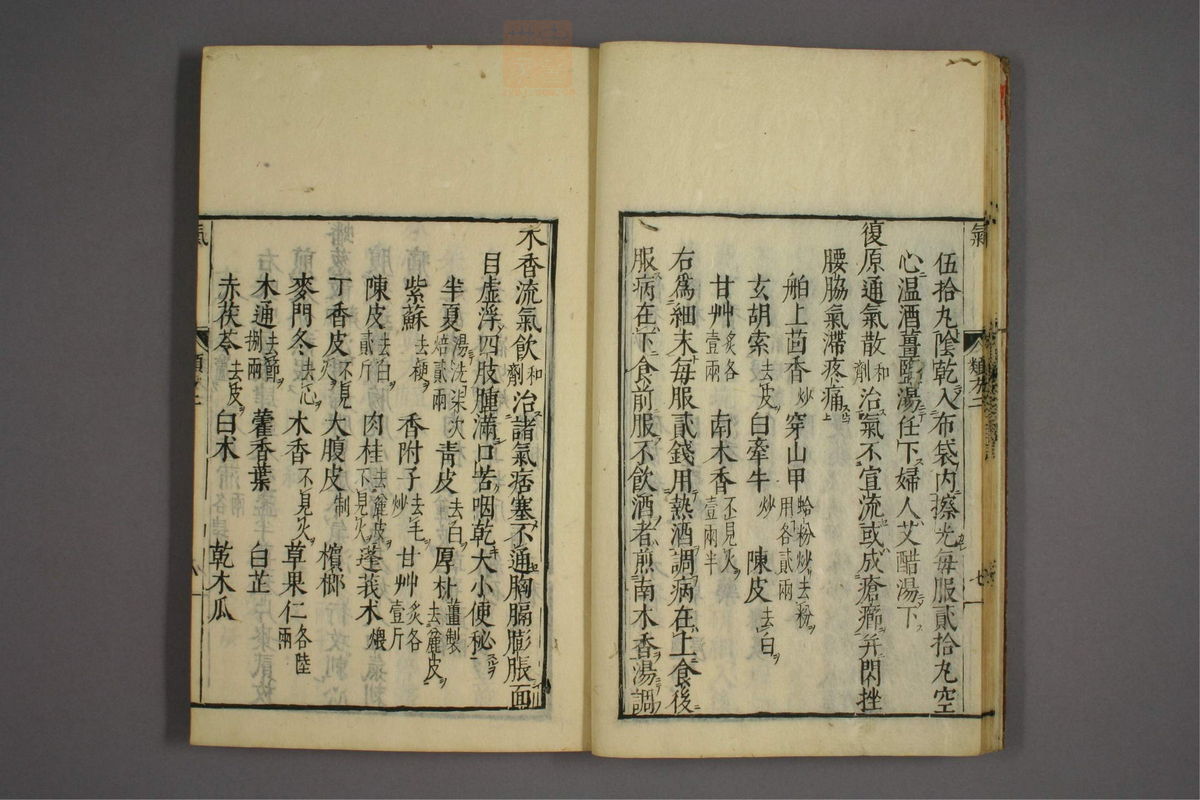 氣
類方二
七
伍拾丸陰乾入布袋內擦光每服貳拾丸空
心溫酒薑鹽湯任下婦人艾醋湯下
復原通氣散和劑治氣不宣流或成瘡癤并閃挫
腰脇氣滯疼痛
舶上茴香炒 穿山甲蛤粉炒去粉用各貳兩
玄胡索去皮 白牽牛炒 陳皮去白
甘艸炙各壹兩 南木香不見火壹兩半
右爲細末每服貳錢用熱酒調病在上食後
服病在下食前服不飲酒者煎南木香湯調
木香流氣飲和劑治諸氣痞塞不通胸膈膨脹面
目虛浮四肢腫滿口苦咽乾大小便秘
半夏湯洗柒次焙貳兩 靑皮去白 厚朴薑製去麄皮
紫蘇去梗 香附子去毛炒 甘艸炙各壹斤
陳皮去白貳斤 肉桂去麄皮不見火 蓬莪朮煨
丁香皮不見火 大腹皮制 檳榔
麥門冬去心 木香不見火 草果仁各陸兩
木通去節捌兩 藿香葉 白芷
赤茯苓去皮 白朮 乾木瓜
氣
類方二
八